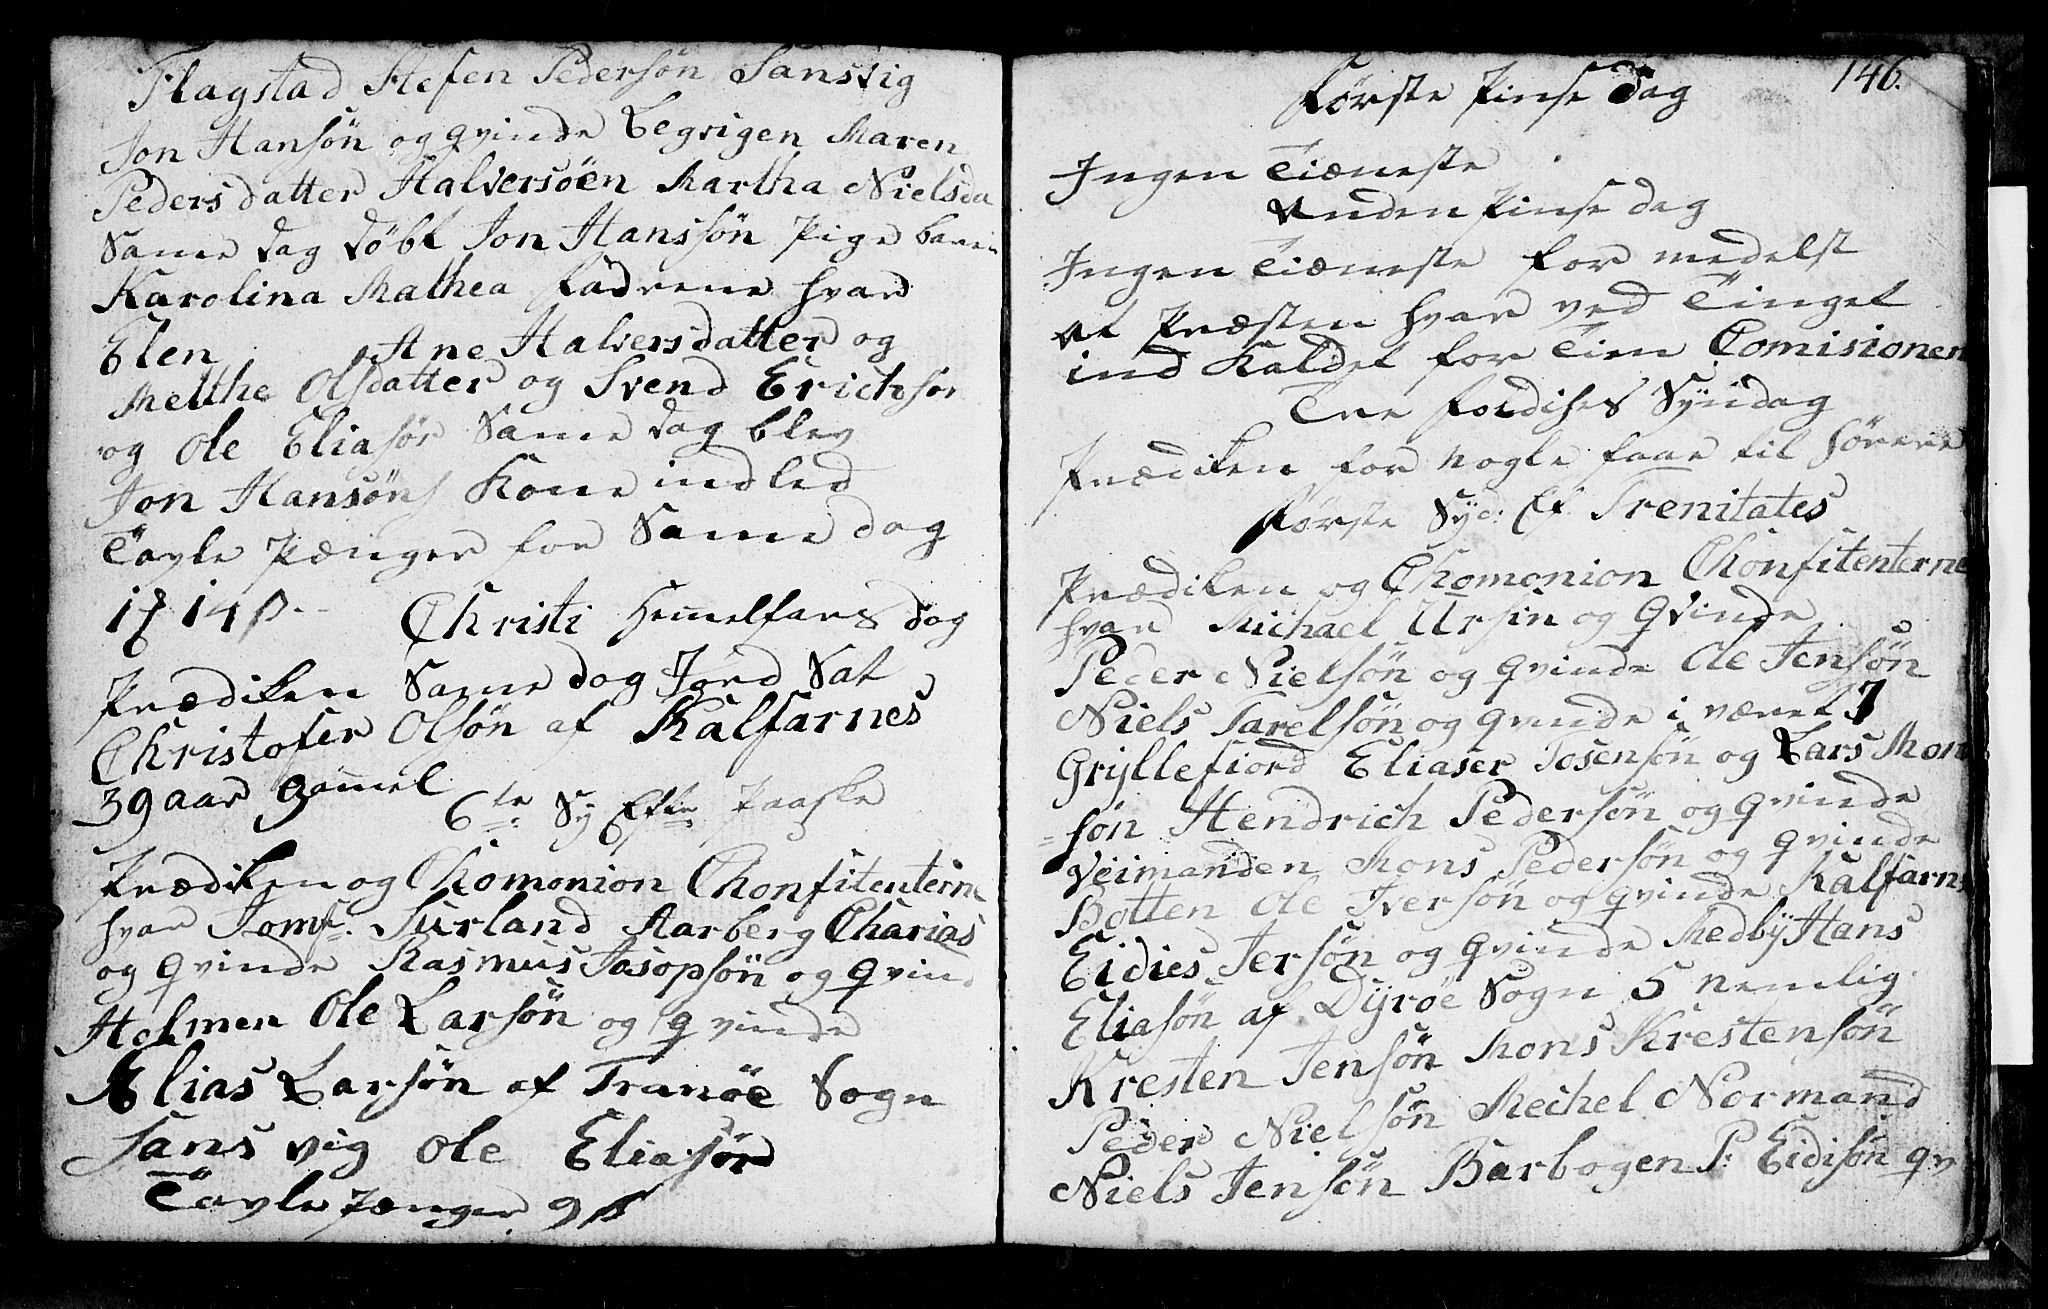 Flagstad Stefen Pedersøn Sansvig
Jon Hansøn og qvinde Legvigen Maren
Peders datter Halversøen Martha Nielsda
Same dag døbt Jon Hanssøn Pige barn
Karolina Mathea fadrene hvar
Elen Ane Halversdatter og
Metthe Olsdatter og Svend Erichsøn
og Ole Eliasøn Same dag blev
Jon Hansøns Kone indled
Tavle Pænger for Same dag
14 ß
Christi Hemelfars dag
Prædiken Same dag Jord Sat
Christofer Olsøn af Kalfarnes
39 aar Gamel
6te Sy Efte Paaske
Prædiken og Chomonion Chonfitenterne
hvar Jomf. Surland Aarberg Charias
og qvinde Rasmus Jasopsøn og qvind
Holmen Ole Larsøn og qvinde
Elias Larsøn af Tranøe Sogn
Sans vig Ole Eliasøn
Tavle Pænger 9 ß
146.
Første Pinse Dag
Ingen Tiæneste
Anden Pinse dag
Ingen Tiæneste for medelst
at Præsten hvar ved Tinget
ind Kaldet for Tien Comisionen
Tre foldihes Syndag
Prædiken for nogle faae til hørere
Første Syd: Ef Trenitates
Prædiken og Chomonion Chonfitenterne
hvar Michael Ursin og Qvinde
Peder Nielsøn og qvinde Ole Jensøn
Niels Tarelsøn og qvinde i været
Gryllefiord Eliaser Josensøn og Lars Mon
søn Hendrich Pedersøn og qvinde
Veimanden Mons Pedersøn og qvinde
Botten Ole Iversøn og qvinde Kalfarns
Eidies Jersøn og qvinde Medby Hans
Eliasøn af Dyrøe Sogn 5 nemlig
Kresten Jensøn Mons Krestensøn
Peder Nielsøn Mechel Normand
Niels Jensøn Barbogen P: Eidisøn qv